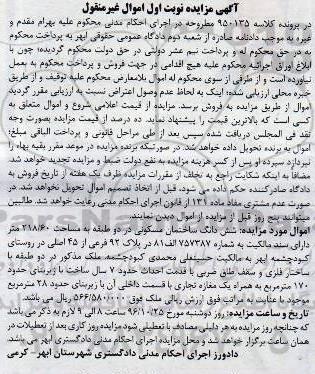 آگهی مزایده نوبت اول اموال غیرمنقول
در پرونده کلاسه ۹۵۰۱۳۵ مطروحه در اجرای احکام مدنی محکوم علیه بهرام مقدم و
غیره به موجب دادنامه صادره از شعبه دوم دادگاه عمومی حقوقی ابهر به پرداخت محکوم
به در حق محکوم له و پرداخت نیم عشر دولتی در حق دولت محکوم گردیده؛ چون با
ابلاغ اوراق اجرائیه محکوم علیه هیچ اقدامی در جهت فروش و پرداخت محکوم به بعمل
نیاورده است و از طرفی از سوی محکوم له اموال بلامعارض محکوم علیه توقیف و از طریق
خبره محلی ارزیابی شده؛ اینک به لحاظ عدم وصول اعتراض نسبت به ارزیابی مقرر گردید
اموال از طریق مزایده به فروش برسد. مزایده از قیمت اعلامی شروع و اموال متعلق به
کسی است که بالاترین قیمت را پیشنهاد نماید. ده درصد از قیمت مزایده بصورت وجه
نقد فی المجلس دریافت شده سپس بعد از طی مراحل قانونی و پرداخت الباقی مبلغ؛
اموال به برنده تحویل داده خواهد شد. در صورتیکه برنده مزایده در موعد مقرر بقیه بهاء را
نپردازد سپرده او پس از کسر هزینه مزایده به نفع دولت ضبط و مزایده تجدید خواهد شد.
مضافا به اینکه شکایت راجع به تخلف از مقررات مزایده ظرف یک هفته از تاریخ فروش به
دادگاه صادرکننده حکم داده می شود، قبل از اتخاذ تصمیم اموال تحویل نخواهد شد. در
صورت عدم مشتری مفاد ماده ۱۳۱ از قانون اجرای احکام مدنی رعایت خواهد شد. طالبین
میتوانند پنج روز قبل از مزایده از اموال دیدن نمایند.
اموال مورد مزایده: شش دانگ ساختمان مسکونی در دو طبقه به مساحت ۲۱۸/۶۰ متر
دارای سند مالکیت به شماره ۷۵۷۳۸۷ الف۸۱ در پلاک ۹۲ فرعی از ۴۵ اصلی در روستای
کبودچشمه ابهر به مالکیت حسینعلی محمدی کبودچشمه. ملک مذکور در دو طبقه با
ساختار فلزی و سقف طاق ضربی با قدمت احداث حدود ۷ سال ساخت با زیربنای حدود
۱۷۰ مترمربع به همراه یک مغازه تجاری با قسمت داخلی آن با زیربنای حدود ۲۸ مترمربع
موجود با عنایت به مراتب فوق ارزش ریالی ملک فوق ۵۶۶/۵۸۰/۰۰۰ ریال می باشد.
تاریخ و ساعت مزایده: روز دوشنبه مورخ ۹۶/۱۰/۲۵ ساعت ۸ الی ۹ لازم به ذکر می باشد
که چنانچه روز مزایده به هر دلیلی مصادف با تعطیلی شود مزایده روز کاری بعد از تعطیلات در
همان ساعت برگزار خواهد شد و محل مزایده اجرای احکام مدنی دادگستری ابهر می باشد.
دادورز اجرای احکام مدنی دادگستری شهرستان ابهر - کرمی